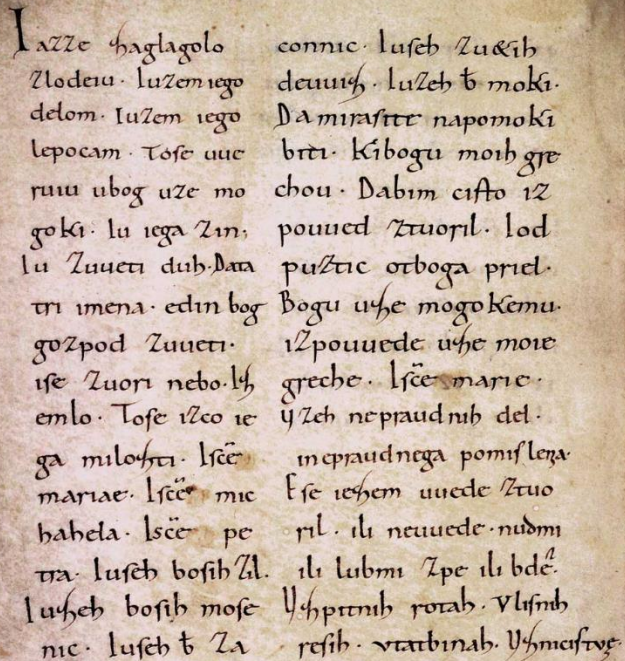 Iazze zaglagolo
zlodeiu. Iuzem iego
delom. Iuzem iego
lepocam. Tose uue
ruiu ubog uze mo
goki. Iu iega zin,
Iu zuueti duh. Data
tri imena. edin bog
gozpod zuueti.
ise zuori nebo. Iz
emlo. Tose izco ie
ga milozti. Isc̄e
mariae. Isc̄e mic
hahela. Isc̄e pe
tra. Iuseh bosih zil.
Iuzeh bosih mose
nic. Iuseh b̄ za
connic. Iuseh zu&ih
deuuiz. Iuzeh b̄ moki.
Da mirasite napomoki
biti. Kibogu moih gre
chou. Dabim cisto iz
pouued ztuoril. Iod
puztic otboga priel.
Bogu uze mogokemu.
izpouuede uze moie
greche. Isc̄e marie.
uzeh nepraudnih del.
inepraudnega pomislena.
Ese iezem uuede ztuo
ril. ili neuuede. nudmi
ili lubmi zpe ili bde.
Uzpitnih rotah. Vlisnih
resih. vtatbinah. Uznicistve.